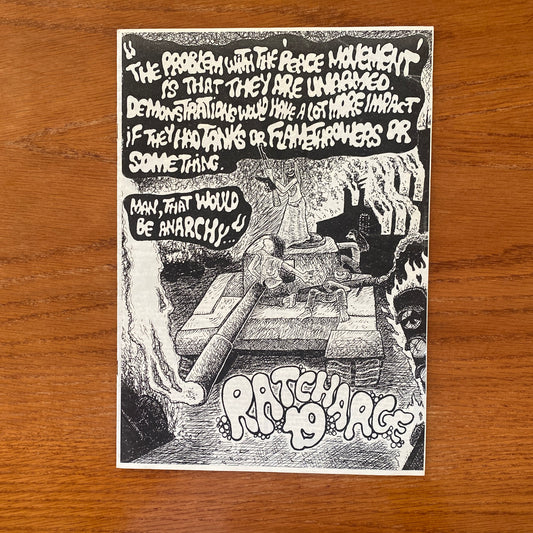 "THE PROBLEM WITH THE 'PEACE MOVEMENT'
IS THAT THEY ARE UNARMED.
DEMONSTRATIONS WOULD HAVE A LOT MORE IMPACT
iF THEY HAD TANKS OR FLAMETHROWERS OR
SOMETHING.
MAN, THAT WOULD
BE ANARCHY..."
RATCHARGE
19